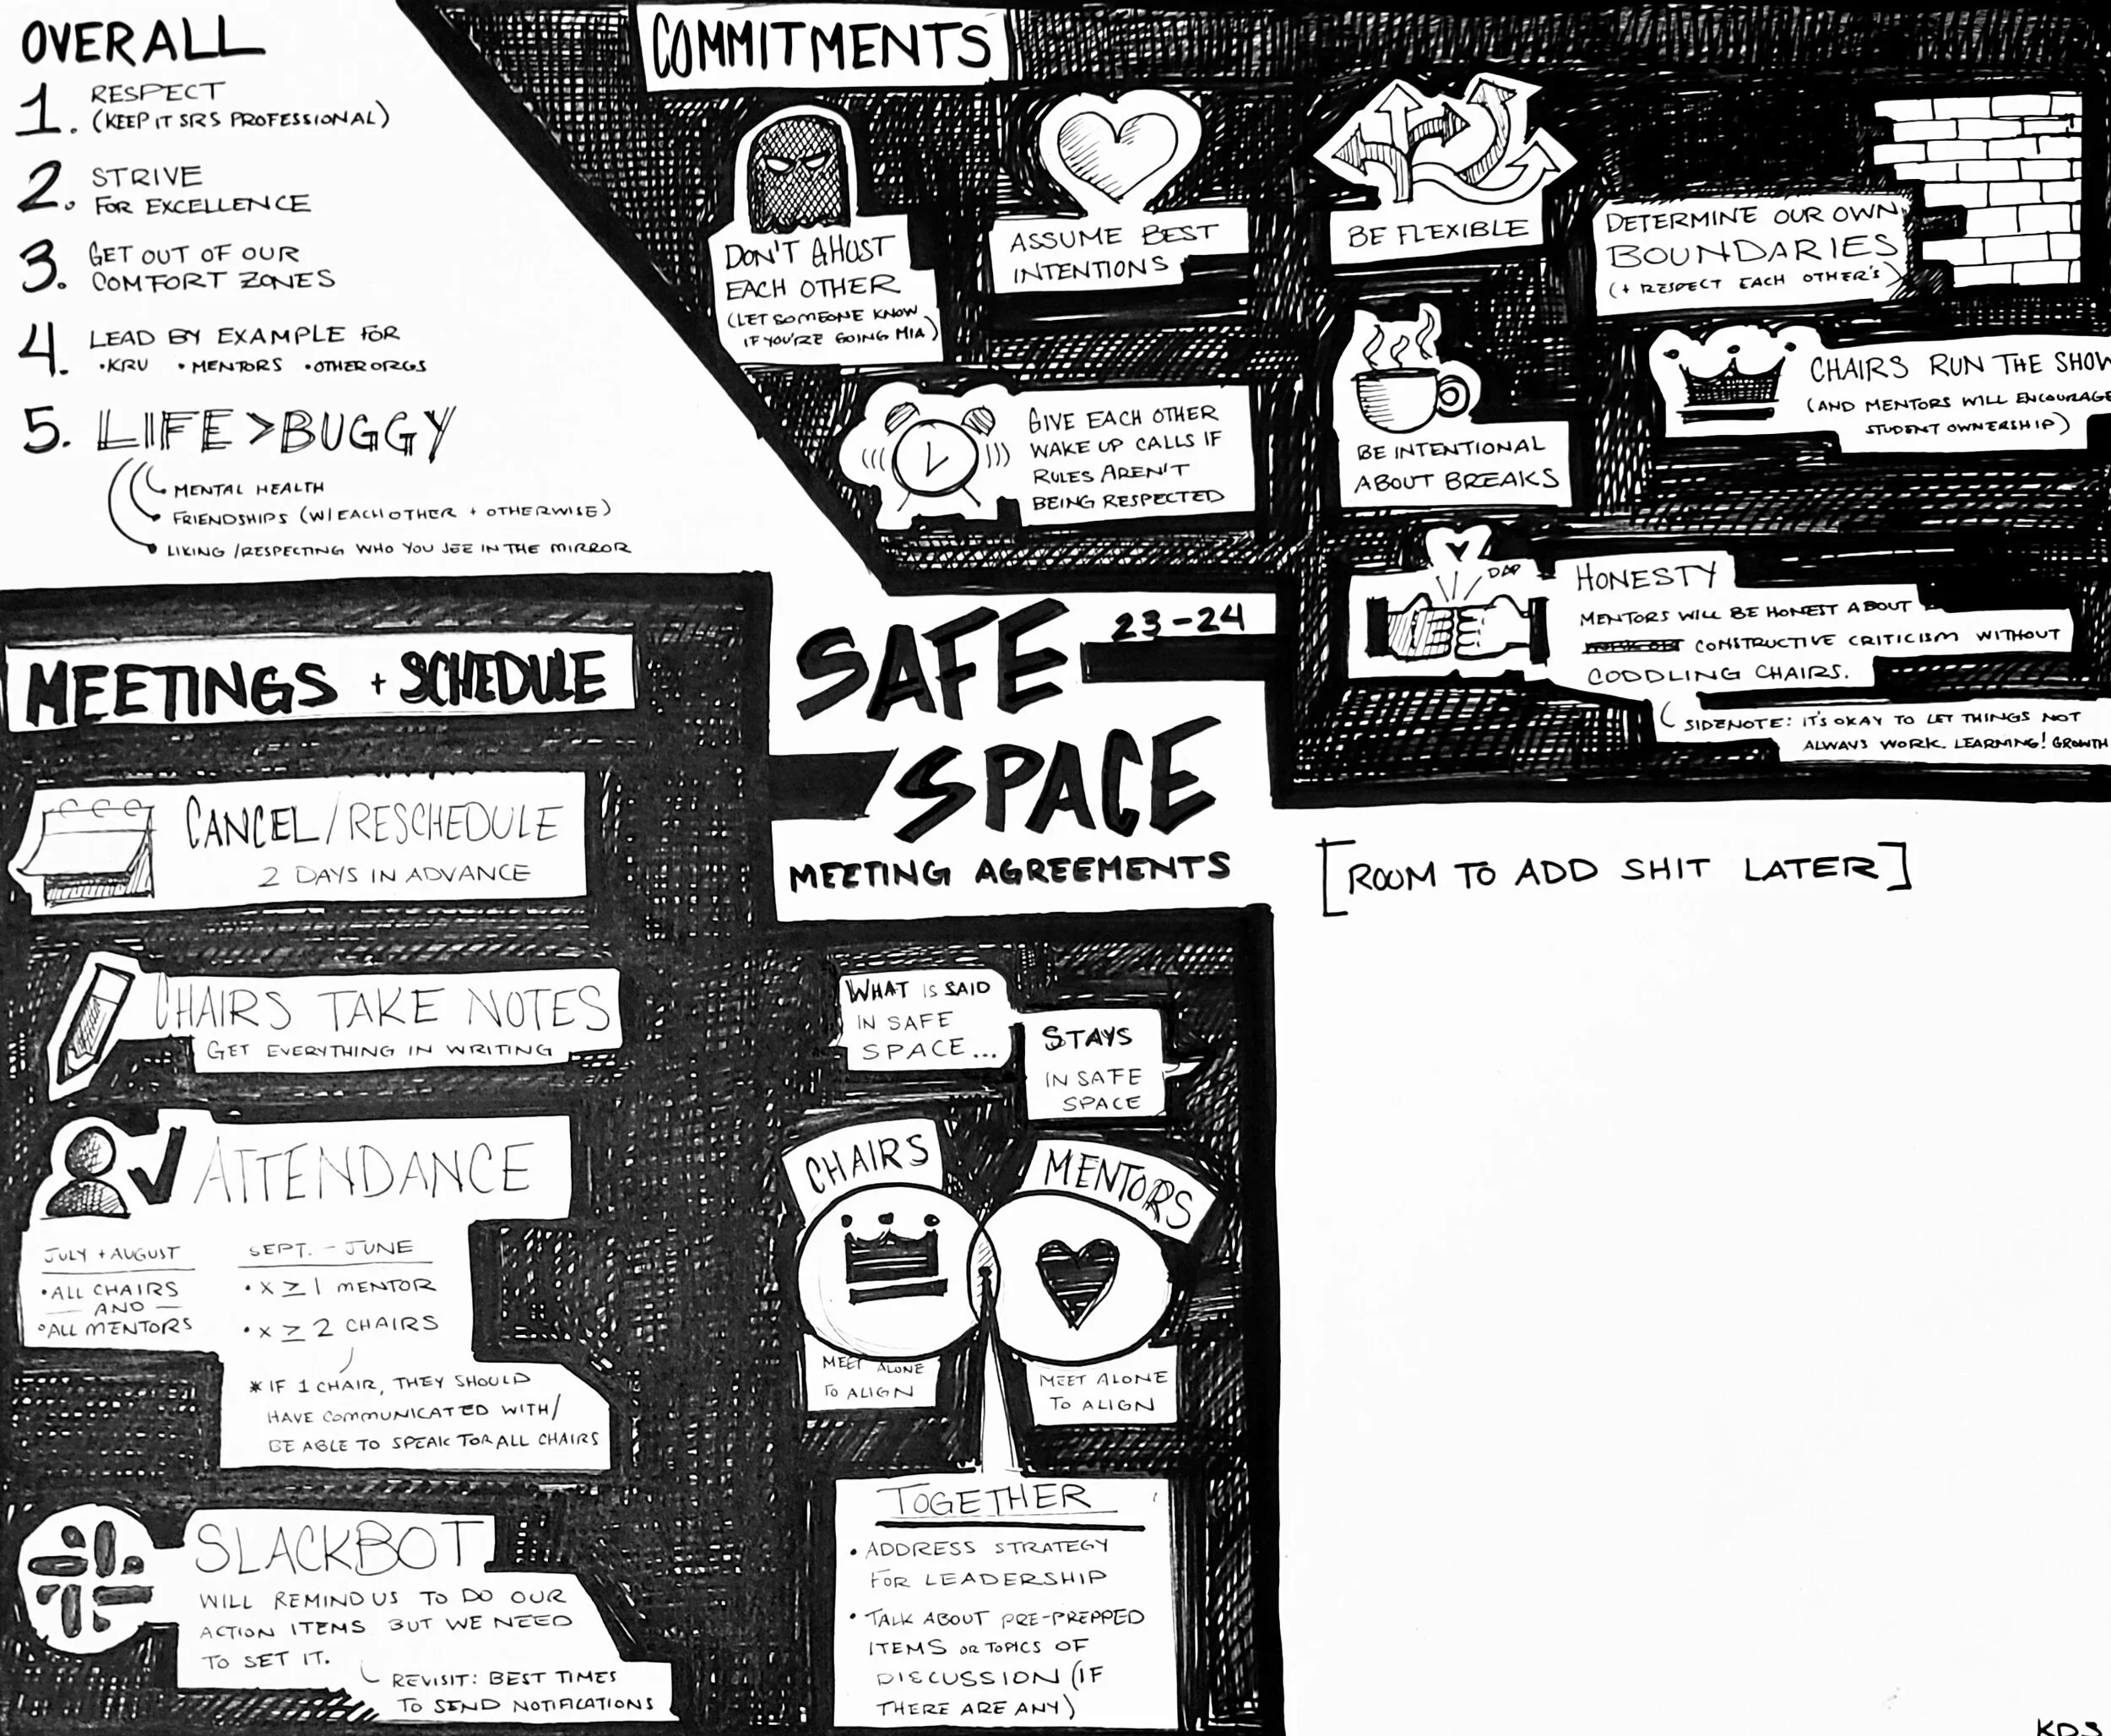 OVERALL
1. RESPECT
(KEEP IT SRS PROFESSIONAL)
2. STRIVE
FOR EXCELLENCE
3. GET OUT OF OUR
COMFORT ZONES
4. LEAD BY EXAMPLE FOR
• KRU • MENTORS • OTHER ORGS
5. LIFE > BUGGY
MENTAL HEALTH
FRIENDSHIPS (W/ EACH OTHER + OTHERWISE)
LIKING / RESPECTING WHO YOU SEE IN THE MIRROR
COMMITMENTS
DON'T GHOST
EACH OTHER
(LET SOMEONE KNOW
IF YOU'RE GOING MIA)
ASSUME BEST
INTENTIONS
BE FLEXIBLE
DETERMINE OUR OWN
BOUNDARIES
(+ RESPECT EACH OTHER'S)
GIVE EACH OTHER
WAKE UP CALLS IF
RULES AREN'T
BEING RESPECTED
BE INTENTIONAL
ABOUT BREAKS
CHAIRS RUN THE SHOW
(AND MENTORS WILL ENCOURAGE
STUDENT OWNERSHIP)
DAP
HONESTY
MENTORS WILL BE HONEST ABOUT
CONSTRUCTIVE CRITICISM WITHOUT
CODDLING CHAIRS.
SIDENOTE: IT'S OKAY TO LET THINGS NOT
ALWAYS WORK. LEARNING! GROWTH
SAFE
23-24
SPACE
MEETING AGREEMENTS
MEETINGS + SCHEDULE
CANCEL/RESCHEDULE
2 DAYS IN ADVANCE
CHAIRS TAKE NOTES
GET EVERYTHING IN WRITING
ATTENDANCE
JULY + AUGUST
• ALL CHAIRS
— AND —
• ALL MENTORS
SEPT. - JUNE
• x ≥ 1 MENTOR
• x ≥ 2 CHAIRS
* IF 1 CHAIR, THEY SHOULD
HAVE COMMUNICATED WITH/
BE ABLE TO SPEAK FOR ALL CHAIRS
SLACKBOT
WILL REMIND US TO DO OUR
ACTION ITEMS BUT WE NEED
TO SET IT.
REVISIT: BEST TIMES
TO SEND NOTIFICATIONS
WHAT IS SAID
IN SAFE
SPACE...
STAYS
IN SAFE
SPACE
CHAIRS
MENTORS
MEET ALONE
TO ALIGN
MEET ALONE
TO ALIGN
TOGETHER
• ADDRESS STRATEGY
FOR LEADERSHIP
• TALK ABOUT PRE-PREPPED
ITEMS OR TOPICS OF
DISCUSSION (IF
THERE ARE ANY)
[ROOM TO ADD SHIT LATER]